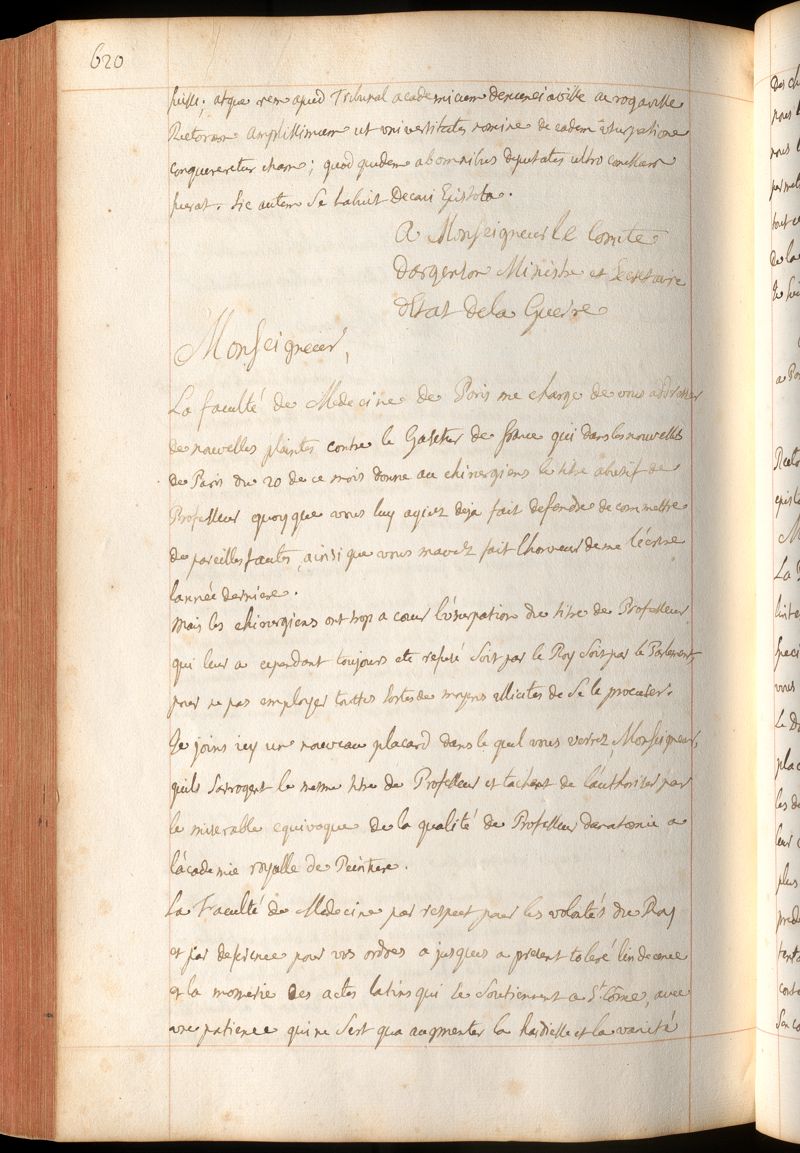 620
fuisse; atque rem apud Tribunal academicum denunciavisse ac rogavisse
Rectorem amplissimum ut universitatis nomine de eadem usurpatione
conquereretur; quod quidem ab omnibus deputatis ultro concessum
fuerat. sic autem se habuit Decani Epistola.
A Monseigneur le Comte
Dargenson Ministre et Secretaire
d'Etat de la Guerre
Monseigneur,
La faculté de Medecine de Paris me charge de vous addresser
de nouvelles plaintes contre le Gasetier de france qui dans les nouvelles
de Paris du 20 de ce mois donne au chirurgiens le titre abusif de
Professeur quoyque vous luy ayiez deja fait defendre de commettre
de pareilles fautes, ainsi que vous mavez fait lhonneur de me lécrire
lannée derniere.
mais les chirurgiens ont trop a cœur l'usurpation du titre de Professeur
qui leur a cependant toujours eté refusé soit par le Roy soit par le Parlement,
pour ne pas employer touttes sortes de moyens illicites de se le procurer.
Je joins icy un nouveau placard dans le quel vous verrez, Monseigneur,
quils s'arrogent le mesme titre de Professeur et tachent de l'authoriser par
le miserable equivoque de la qualité de Professeur danatomie a
l'academie royalle de Peinture.
La Faculté de Medecine par respect pour les volontés du Roy
et par deference pour vos ordres a jusques a present toleré lindecence
et la momerie des actes latins qui se soutiennent a St. Côme, avec
une patience qui ne sert qua augmenter la hardiesse et la vanité